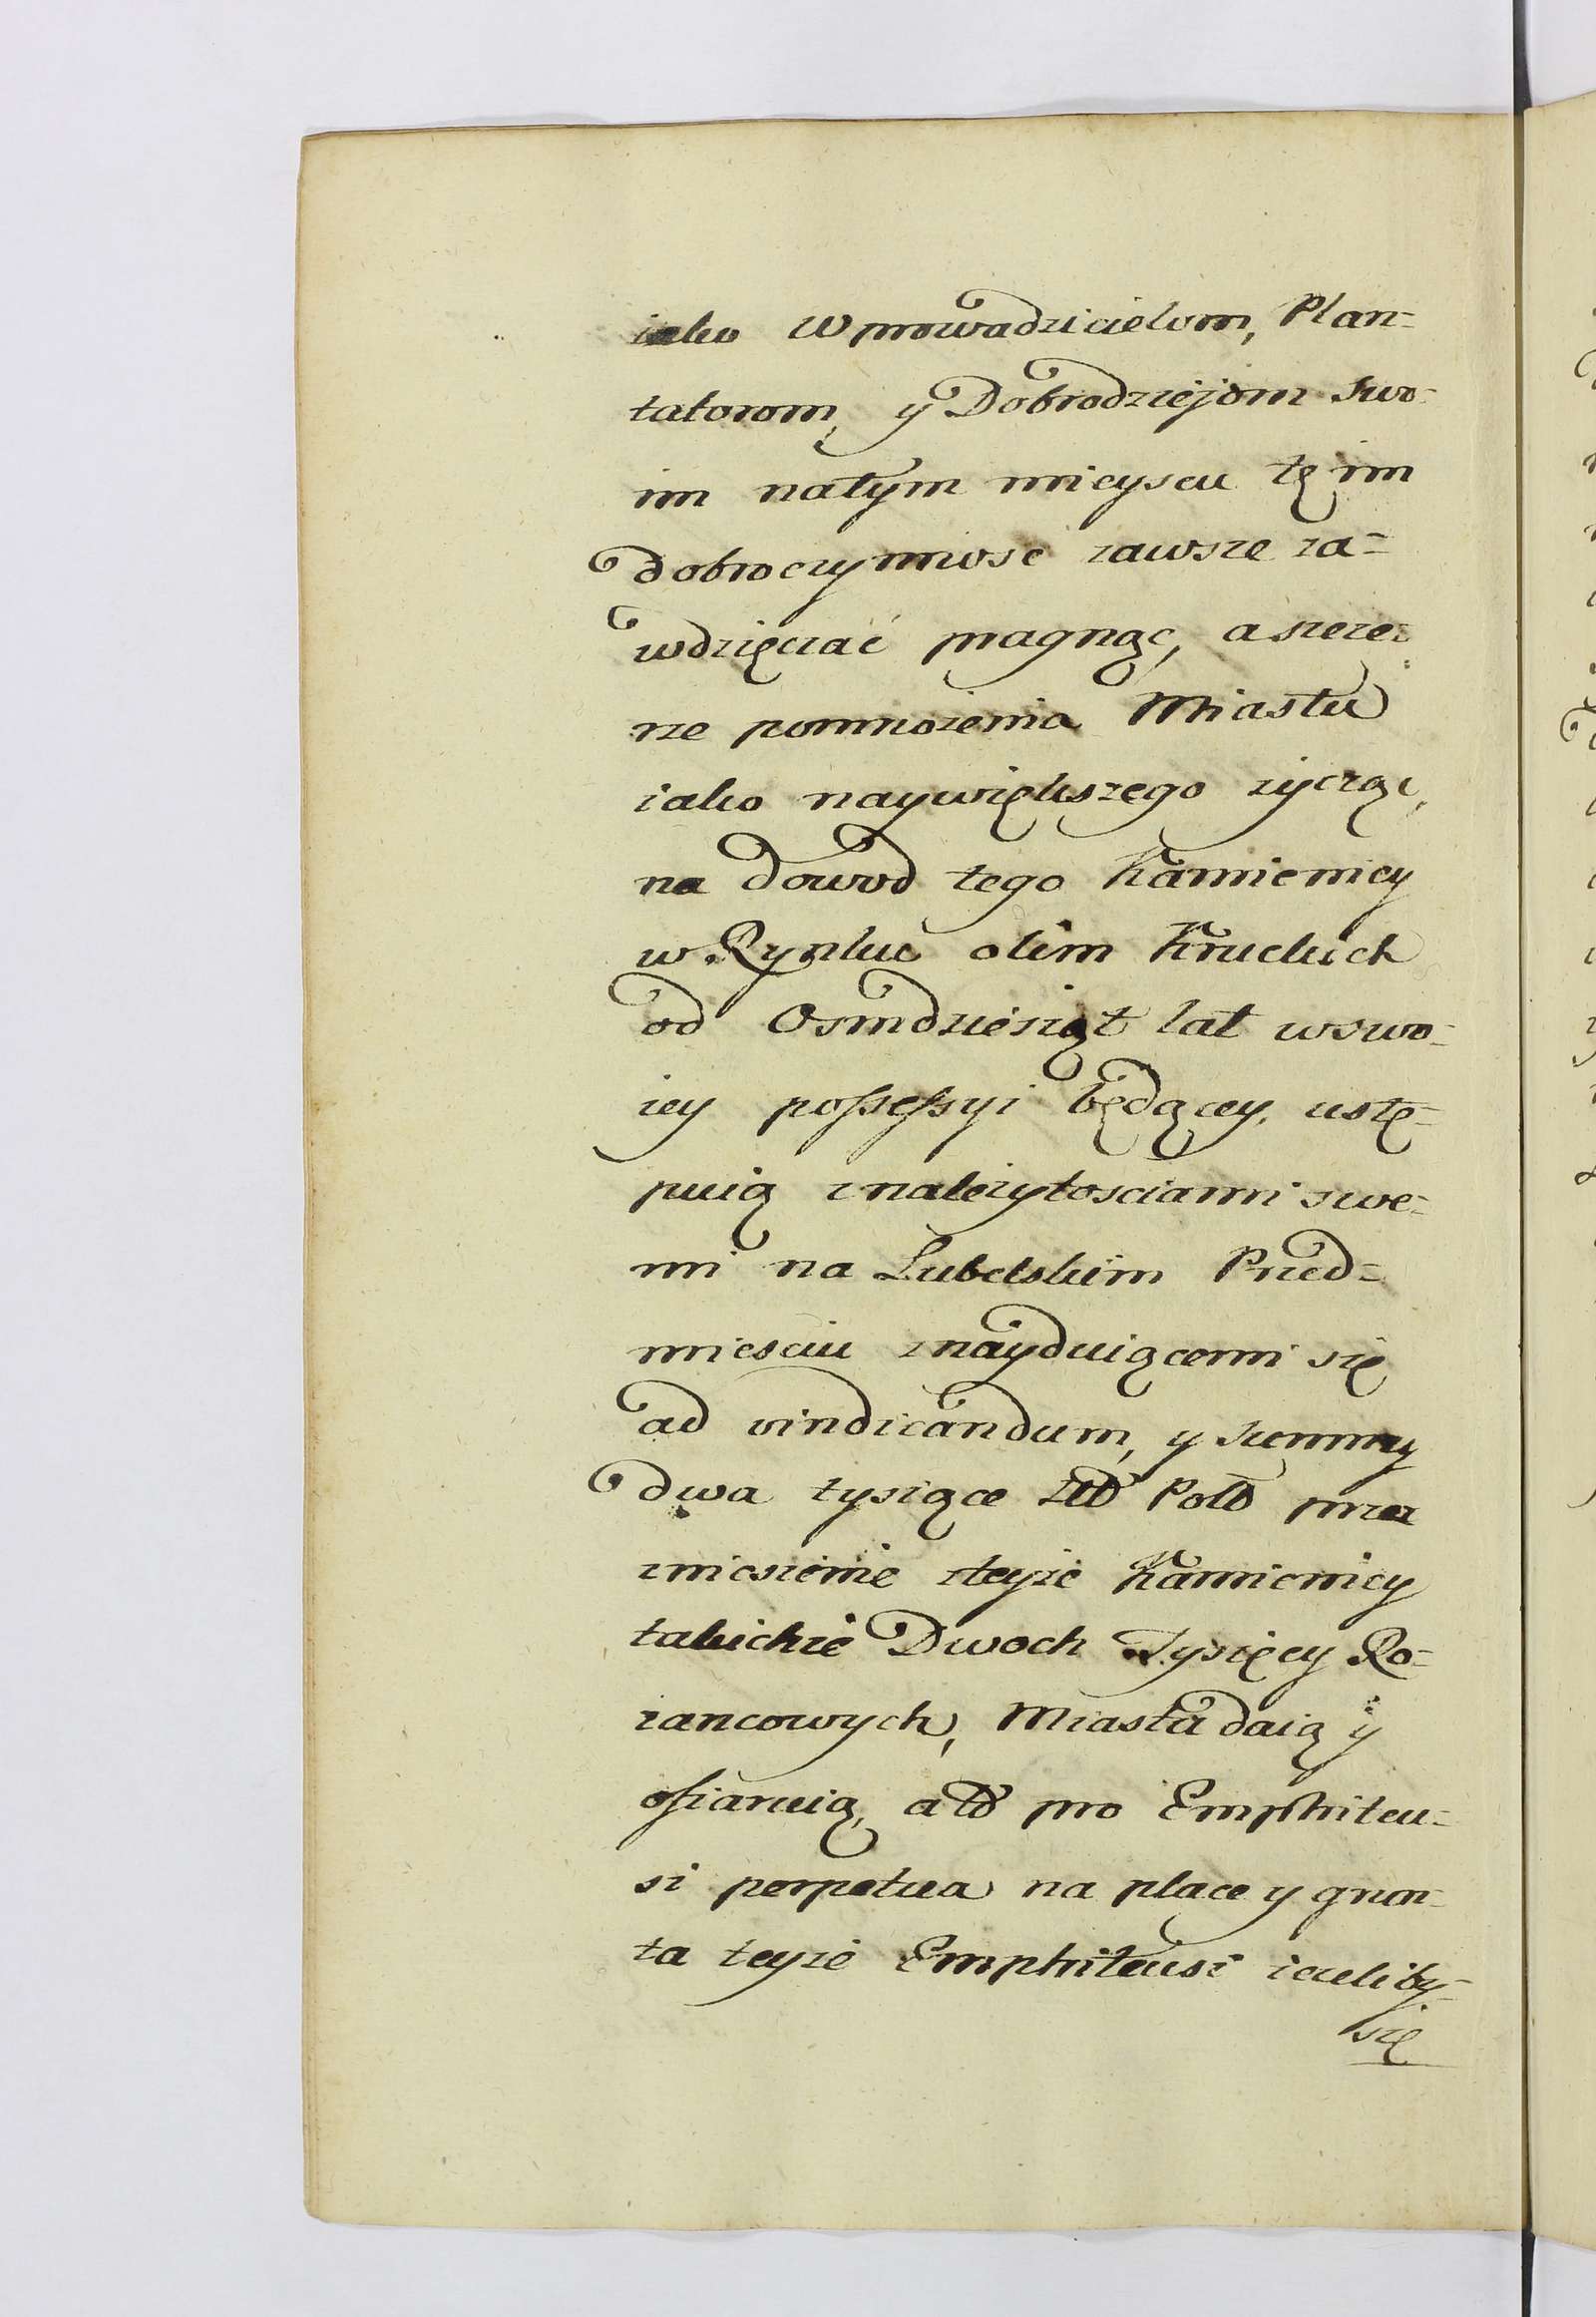 iako Wprowadzicielom, Plan=
tatorom, y Dobrodziejom swo=
im natym mieyscu tę im
dobroczynnosc zawsze za=
wdzięczać pragnąc, a szcze=
rze pomnożenia Miasta
iako naywiększego życząc,
na dowod tego Kamienicy
w Rynku olim Kruckich
od Osmdziesiąt lat wswo=
iey possessyi będącey, ustę=
puią znależytosciami swe=
mi na Lubelskim Przed=
miesciu znayduiącemi się
ad vindicandum, y summy
dwa tysiące Złł Poll przez
zniesienie zteyże Kamienicy
takichże Dwoch Tysięcy Ro=
żancowych, Miastu daią y
ofiaruią, all pro Emphiteu=
si perpetua na place y grun=
ta teyże Emphiteusi ieżeliby=
się